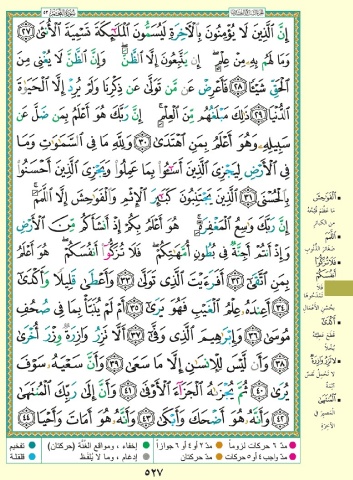 سُورَةُ النَّجْمِ ٥٣
إِنَّ الَّذِينَ لَا يُؤْمِنُونَ بِالْآخِرَةِ لَيُسَمُّونَ الْمَلَٰٓئِكَةَ تَسْمِيَةَ الْأُنثَىٰ ٢٧
وَمَا لَهُم بِهِۦ مِنْ عِلْمٍ ۖ إِن يَتَّبِعُونَ إِلَّا الظَّنَّ ۖ وَإِنَّ الظَّنَّ لَا يُغْنِي مِنَ
الْحَقِّ شَيْـًٔا ٢٨ فَأَعْرِضْ عَن مَّن تَوَلَّىٰ عَن ذِكْرِنَا وَلَمْ يُرِدْ إِلَّا الْحَيَوٰةَ
الدُّنْيَا ٢٩ ذَٰلِكَ مَبْلَغُهُم مِّنَ الْعِلْمِ ۚ إِنَّ رَبَّكَ هُوَ أَعْلَمُ بِمَن ضَلَّ عَن
سَبِيلِهِۦ وَهُوَ أَعْلَمُ بِمَنِ اهْتَدَىٰ ٣٠ وَلِلَّهِ مَا فِي السَّمَٰوَٰتِ وَمَا
فِي الْأَرْضِ لِيَجْزِيَ الَّذِينَ أَسَٰٓـُٔوا بِمَا عَمِلُوا وَيَجْزِيَ الَّذِينَ أَحْسَنُوا
بِالْحُسْنَى ٣١ الَّذِينَ يَجْتَنِبُونَ كَبَٰٓئِرَ الْإِثْمِ وَالْفَوَٰحِشَ إِلَّا اللَّمَمَ ۚ
إِنَّ رَبَّكَ وَٰسِعُ الْمَغْفِرَةِ ۚ هُوَ أَعْلَمُ بِكُمْ إِذْ أَنشَأَكُم مِّنَ الْأَرْضِ
وَإِذْ أَنتُمْ أَجِنَّةٌ فِي بُطُونِ أُمَّهَٰتِكُمْ ۖ فَلَا تُزَكُّوا أَنفُسَكُمْ ۖ هُوَ أَعْلَمُ
بِمَنِ اتَّقَىٰ ٣٢ أَفَرَءَيْتَ الَّذِي تَوَلَّىٰ ٣٣ وَأَعْطَىٰ قَلِيلًا وَأَكْدَىٰ
٣٤ أَعِندَهُۥ عِلْمُ الْغَيْبِ فَهُوَ يَرَىٰ ٣٥ أَمْ لَمْ يُنَبَّأْ بِمَا فِي صُحُفِ
مُوسَىٰ ٣٦ وَإِبْرَٰهِيمَ الَّذِي وَفَّىٰ ٣٧ أَلَّا تَزِرُ وَازِرَةٌ وِزْرَ أُخْرَىٰ
٣٨ وَأَن لَّيْسَ لِلْإِنسَٰنِ إِلَّا مَا سَعَىٰ ٣٩ وَأَنَّ سَعْيَهُۥ سَوْفَ
يُرَىٰ ٤٠ ثُمَّ يُجْزَىٰهُ الْجَزَآءَ الْأَوْفَىٰ ٤١ وَأَنَّ إِلَىٰ رَبِّكَ الْمُنتَهَىٰ
٤٢ وَأَنَّهُۥ هُوَ أَضْحَكَ وَأَبْكَىٰ ٤٣ وَأَنَّهُۥ هُوَ أَمَاتَ وَأَحْيَا ٤٤
الْفَوَاحِشَ
مَا عَظُمَ قُبْحُهُ
مِنَ الْكَبَائِرِ
اللَّمَمَ
صَغَائِرَ الذُّنُوبِ
فَلَا تُزَكُّوا
أَنفُسَكُمْ
فَلَا
تَمْدَحُوهَا
بِحُسْنِ الْأَعْمَالِ
أَكْدَى
قَطَعَ عَطِيَّتَهُ
بُخْلًا
لَا تَزِرُ وَازِرَةٌ
لَا تَحْمِلُ نَفْسٌ
آثِمَةٌ
الْمُنتَهَى
الْمَصِيرَ فِي
الْآخِرَةِ
مدّ ٦ حركات لزوماً
مدّ ٢ أو ٤ أو ٦ جوازاً
إخفاء، ومواقع الغنّة (حركتان)
تفخيم
مدّ واجب ٤ أو ٥ حركات
مدّ حركتان
إدغام، وما لا يُلفظ
قلقلة
٥٢٧